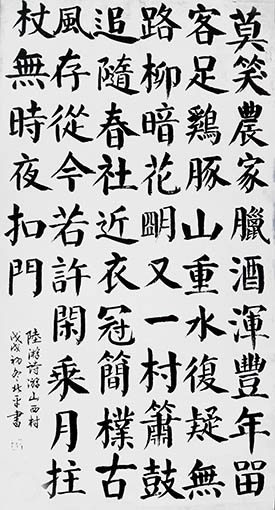 莫笑農家臘酒渾豐年留
客足鷄豚山重水復疑無
路柳暗花明又一村簫鼓
追隨春社近衣冠簡樸古
風存從今若許閑乘月拄
杖無時夜扣門
陸游詩游山西村
戊戌初冬北平書